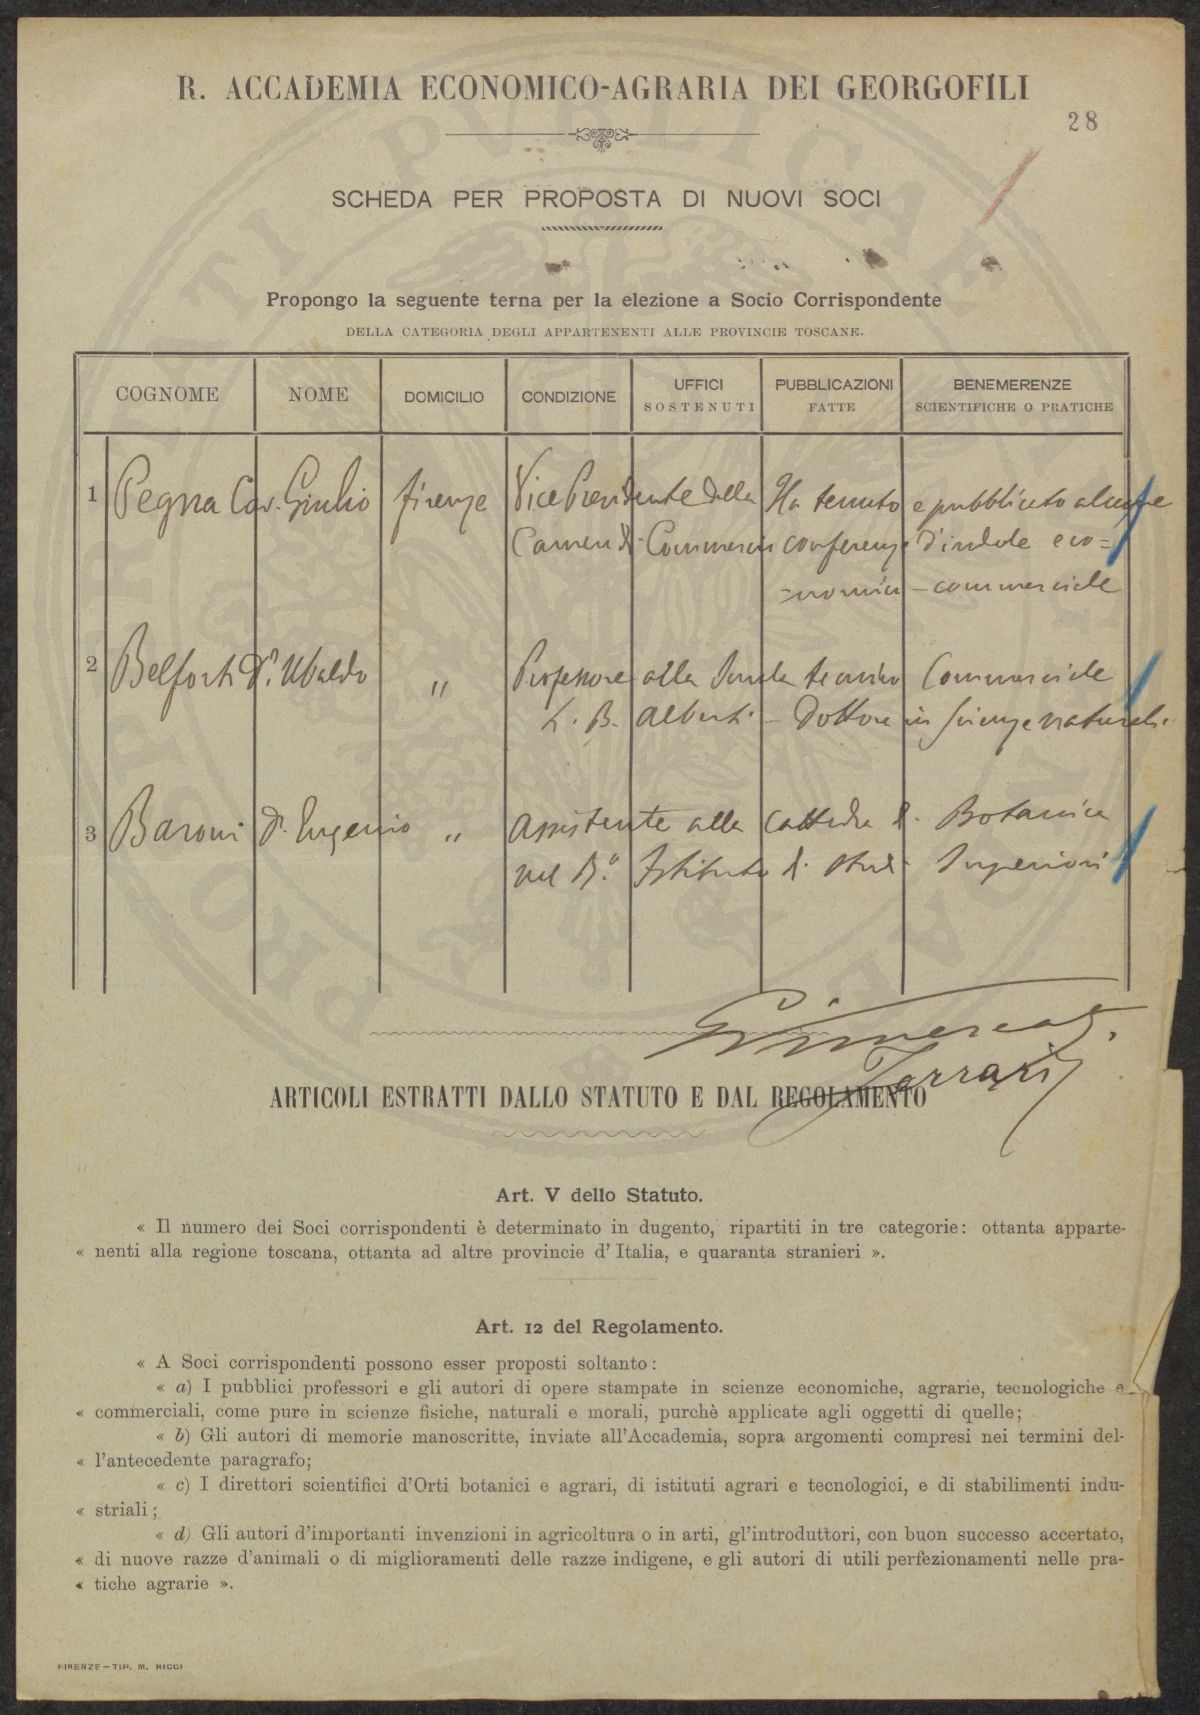 R. ACCADEMIA ECONOMICO-AGRARIA DEI GEORGOFILI
28
SCHEDA PER PROPOSTA DI NUOVI SOCI
Propongo la seguente terna per la elezione a Socio Corrispondente
DELLA CATEGORIA DEGLI APPARTENENTI ALLE PROVINCIE TOSCANE.
COGNOME NOME DOMICILIO CONDIZIONE UFFICI SOSTENUTI PUBBLICAZIONI FATTE BENEMERENZE SCIENTIFICHE O PRATICHE
1 Pegna Cav. Giulio firenze Vice Presidente della Ha tenuto e pubblicato alcune
Camera di Commercio conferenze d'indole eco=
=nomica - commerciale
2 Belforti Dr. Ubaldo " Professore alla Scuola tecnica Commerciale
L. B. Alberti - Dottore in scienze naturali.
3 Baroni Dr. Eugenio " Assistente alla Cattedra di Botanica
nel R.º Istituto di Studi Superiori
Ferrari
ARTICOLI ESTRATTI DALLO STATUTO E DAL REGOLAMENTO
Art. V dello Statuto.
« Il numero dei Soci corrispondenti è determinato in dugento, ripartiti in tre categorie: ottanta apparte-
« nenti alla regione toscana, ottanta ad altre provincie d'Italia, e quaranta stranieri ».
Art. 12 del Regolamento.
« A Soci corrispondenti possono esser proposti soltanto:
« a) I pubblici professori e gli autori di opere stampate in scienze economiche, agrarie, tecnologiche e
« commerciali, come pure in scienze fisiche, naturali e morali, purchè applicate agli oggetti di quelle;
« b) Gli autori di memorie manoscritte, inviate all'Accademia, sopra argomenti compresi nei termini del-
« l'antecedente paragrafo;
« c) I direttori scientifici d'Orti botanici e agrari, di istituti agrari e tecnologici, e di stabilimenti indu-
« striali;
« d) Gli autori d'importanti invenzioni in agricoltura o in arti, gl'introduttori, con buon successo accertato,
« di nuove razze d'animali o di miglioramenti delle razze indigene, e gli autori di utili perfezionamenti nelle pra-
« tiche agrarie ».
FIRENZE—TIP. M. RICCI